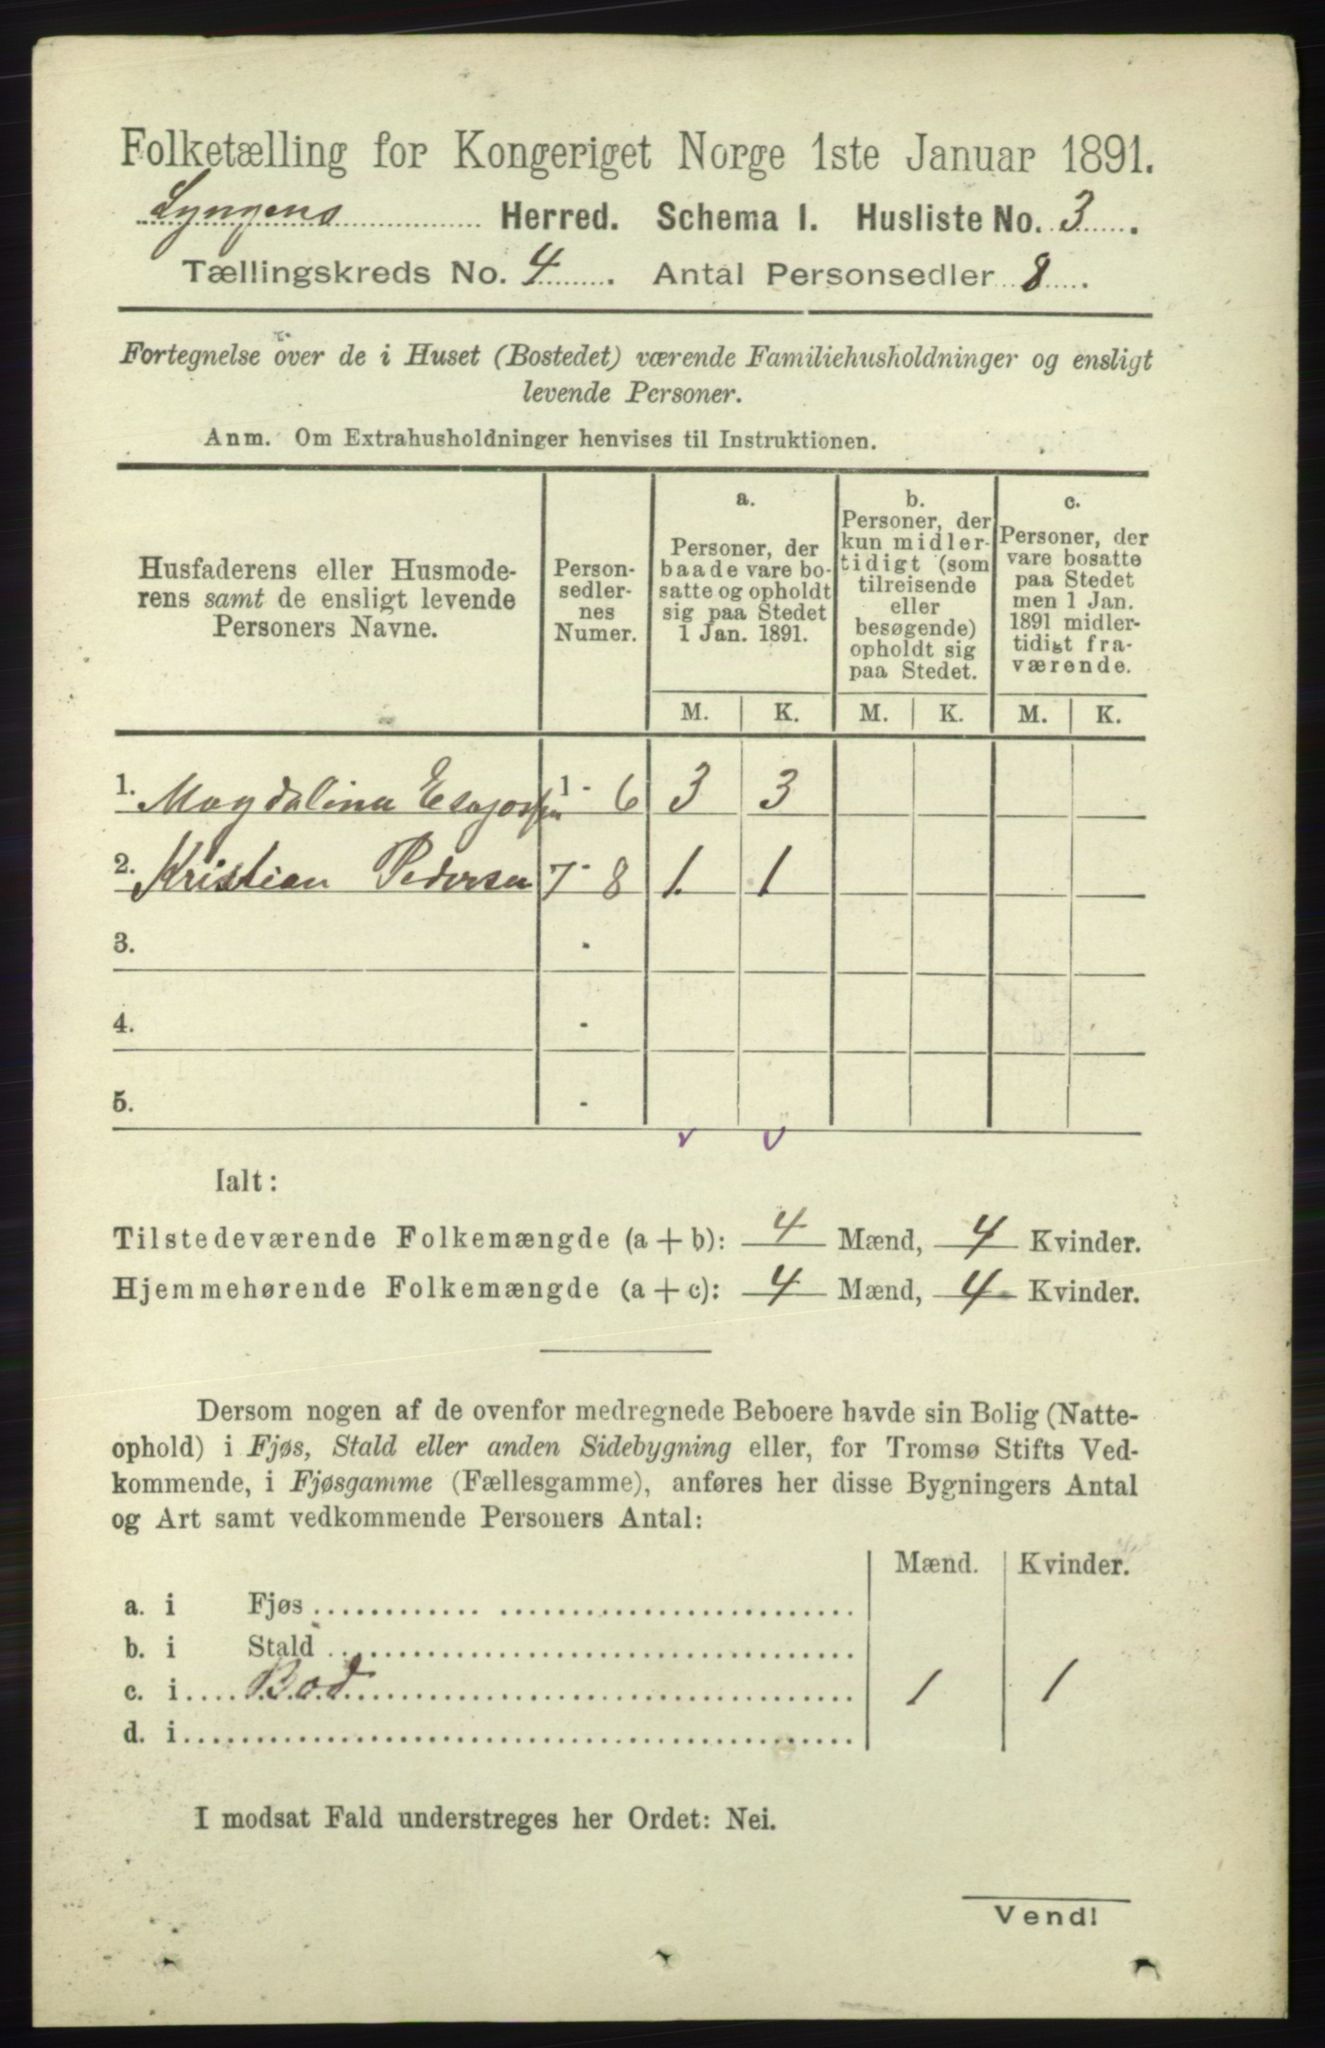 Folketælling for Kongeriget Norge 1ste Januar 1891.
Lyngens Herred. Schema I. Husliste No. 3.
Tællingskreds No. 4. Antal Personsedler 8.
Fortegnelse over de i Huset (Bostedet) værende Familiehusholdninger og ensligt
levende Personer.
Anm. Om Extrahusholdninger henvises til Instruktionen.
Husfaderens eller Husmode-
rens samt de ensligt levende
Personers Navne.
Person-
sedler-
nes
Numer.
a.
Personer, der
baade vare bo-
satte og opholdt
sig paa Stedet
1 Jan. 1891.
b.
Personer, der
kun midler-
tidigt (som
tilreisende
eller
besøgende)
opholdt sig
paa Stedet.
c.
Personer, der
vare bosatte
paa Stedet
men 1 Jan.
1891 midler-
tidigt fra-
værende.
M. K. M. K. M. K.
1. Magdalina 1 - 6 3 3
2. Kristian Pedersen 7 - 8 1. 1
3. -
4. -
5. -
v v
Ialt:
Tilstedeværende Folkemængde (a + b): 4 Mænd, 4 Kvinder.
Hjemmehørende Folkemængde (a + c): 4 Mænd, 4 Kvinder.
Dersom nogen af de ovenfor medregnede Beboere havde sin Bolig (Natte-
ophold) i Fjøs, Stald eller anden Sidebygning eller, for Tromsø Stifts Ved-
kommende, i Fjøsgamme (Fællesgamme), anføres her disse Bygningers Antal
og Art samt vedkommende Personers Antal:
Mænd. Kvinder.
a. i Fjøs
b. i Stald
c. i Bod 1 1
d. i
I modsat Fald understreges her Ordet: Nei.
Vend!